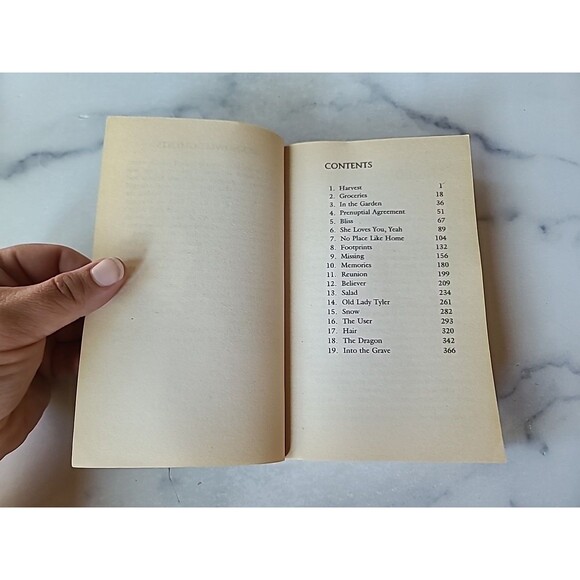 CONTENTS
1. Harvest 1
2. Groceries 18
3. In the Garden 36
4. Prenuptial Agreement 51
5. Bliss 67
6. She Loves You, Yeah 89
7. No Place Like Home 104
8. Footprints 132
9. Missing 156
10. Memories 180
11. Reunion 199
12. Believer 209
13. Salad 234
14. Old Lady Tyler 261
15. Snow 282
16. The User 293
17. Hair 320
18. The Dragon 342
19. Into the Grave 366